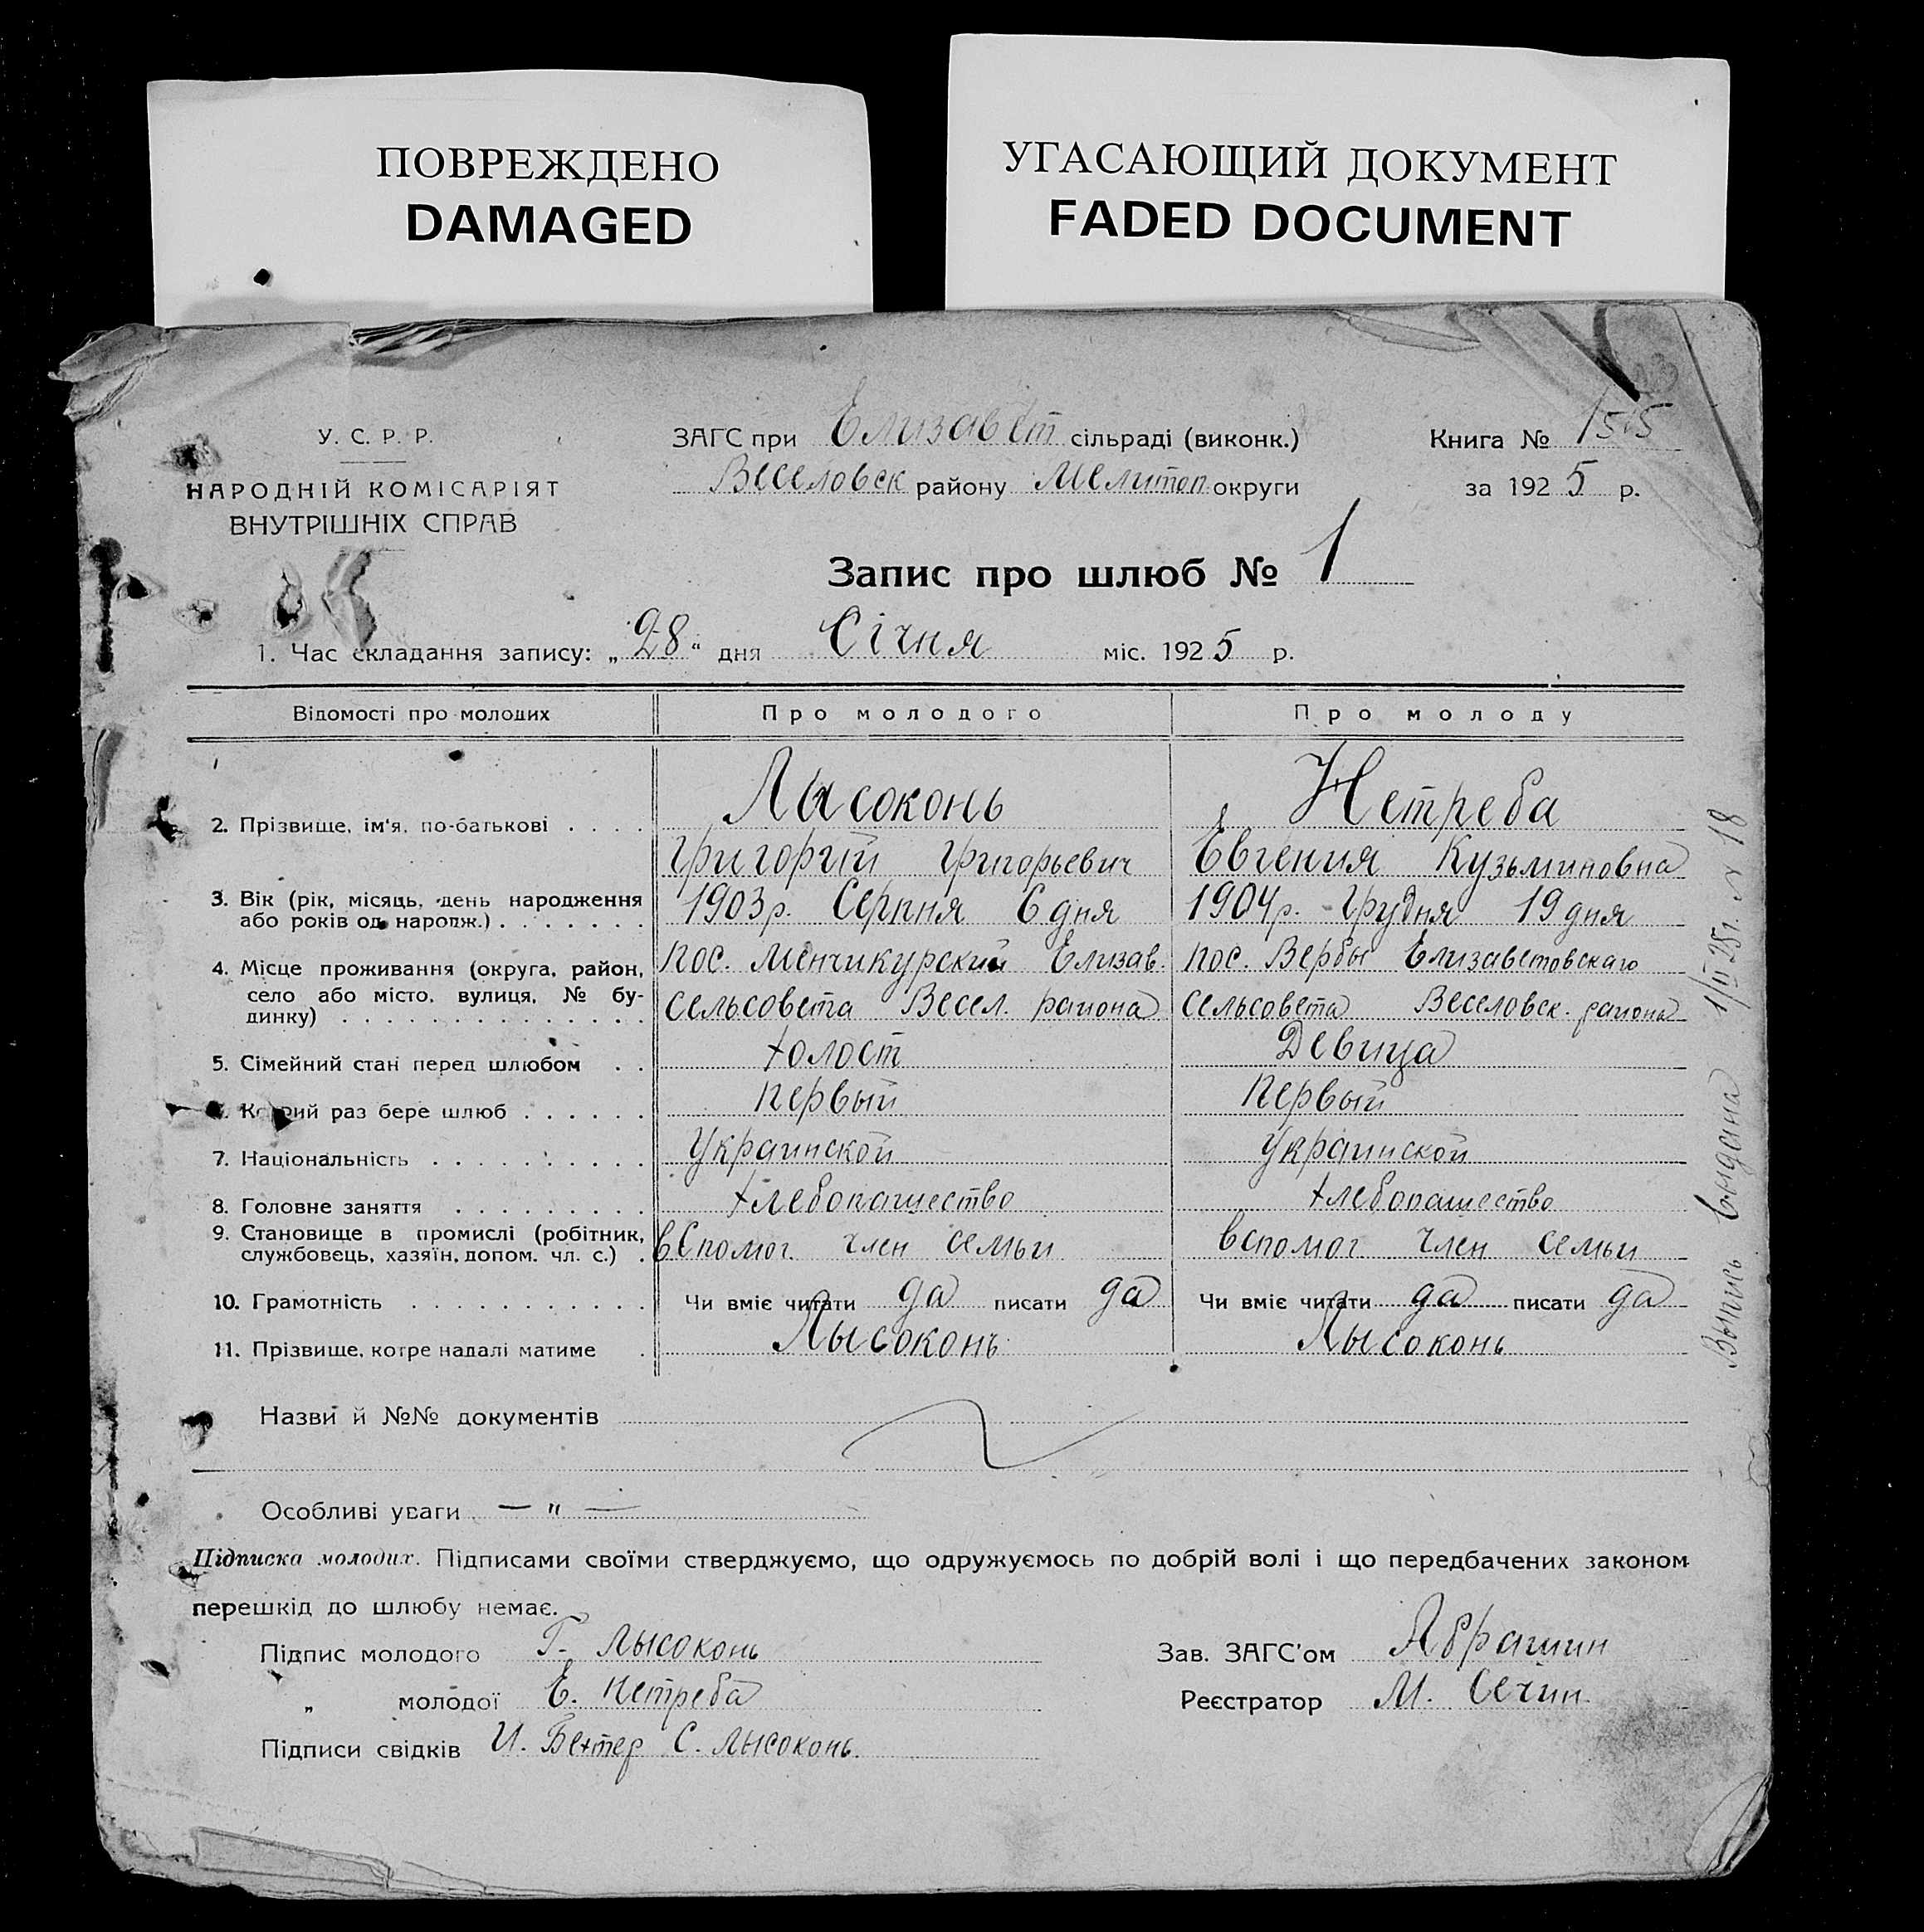 ПОВРЕЖДЕНО
DAMAGED
УГАСАЮЩИЙ ДОКУМЕНТ
FADED DOCUMENT
У. С. Р. Р.
НАРОДНІЙ КОМІСАРІЯТ
ВНУТРІШНІХ СПРАВ
ЗАГС при Елизавет сільраді (виконк.)
Веселовск району Мелитоп округи
Книга №
за 1925 р.
Запис про шлюб № 1
1. Час складання запису: „28“ дня Січня міс. 1925 р.
Відомості про молодих Про молодого Про молоду
2. Прізвище, ім'я, по-батькові . . . . Лысоконь Нетреба
Григорій Григорьевич Евгения Кузьминовна
3. Вік (рік, місяць, день народження
або років од народж.) . . . . . . . 1903 р. Серпня 6 дня 1904 р. Грудня 19 дня
4. Місце проживання (округа, район,
село або місто, вулиця, № бу-
динку) . . . . . . . . . . . . . .
пос. Менчикурский Елизав.
сельсовета Весел. района
пос. Вербы Елизаветовскаго
сельсовета Веселовск. района
5. Сімейний стан перед шлюбом . . Холост Девица
Котрий раз бере шлюб . . . . . . первый первый
7. Національність . . . . . . . . . . Украинской Украинской
8. Головне заняття . . . . . . . . . Хлебопашество Хлебопашество
9. Становище в промислі (робітник,
службовець, хазяїн, допом. чл. с.) . вспомог. член семьи вспомог член семьи
10. Грамотність . . . . . . . . . . . Чи вміє читати да писати да Чи вміє читати да писати да
11. Прізвище, котре надалі матиме . Лысоконь Лысоконь
Назви й №№ документів
Особливі уваги — „ —
Підписка молодих. Підписами своїми стверджуємо, що одружуємось по добрій волі і що передбачених законом
перешкід до шлюбу немає.
Підпис молодого Г. Лысоконь
„ молодої Е. Нетреба
Підписи свідків И. Бехтер С. Лысоконь.
Зав. ЗАГС'ом Абрашин
Реєстратор М. Сечин
Выпись выдана 1/II 25 г. № 18